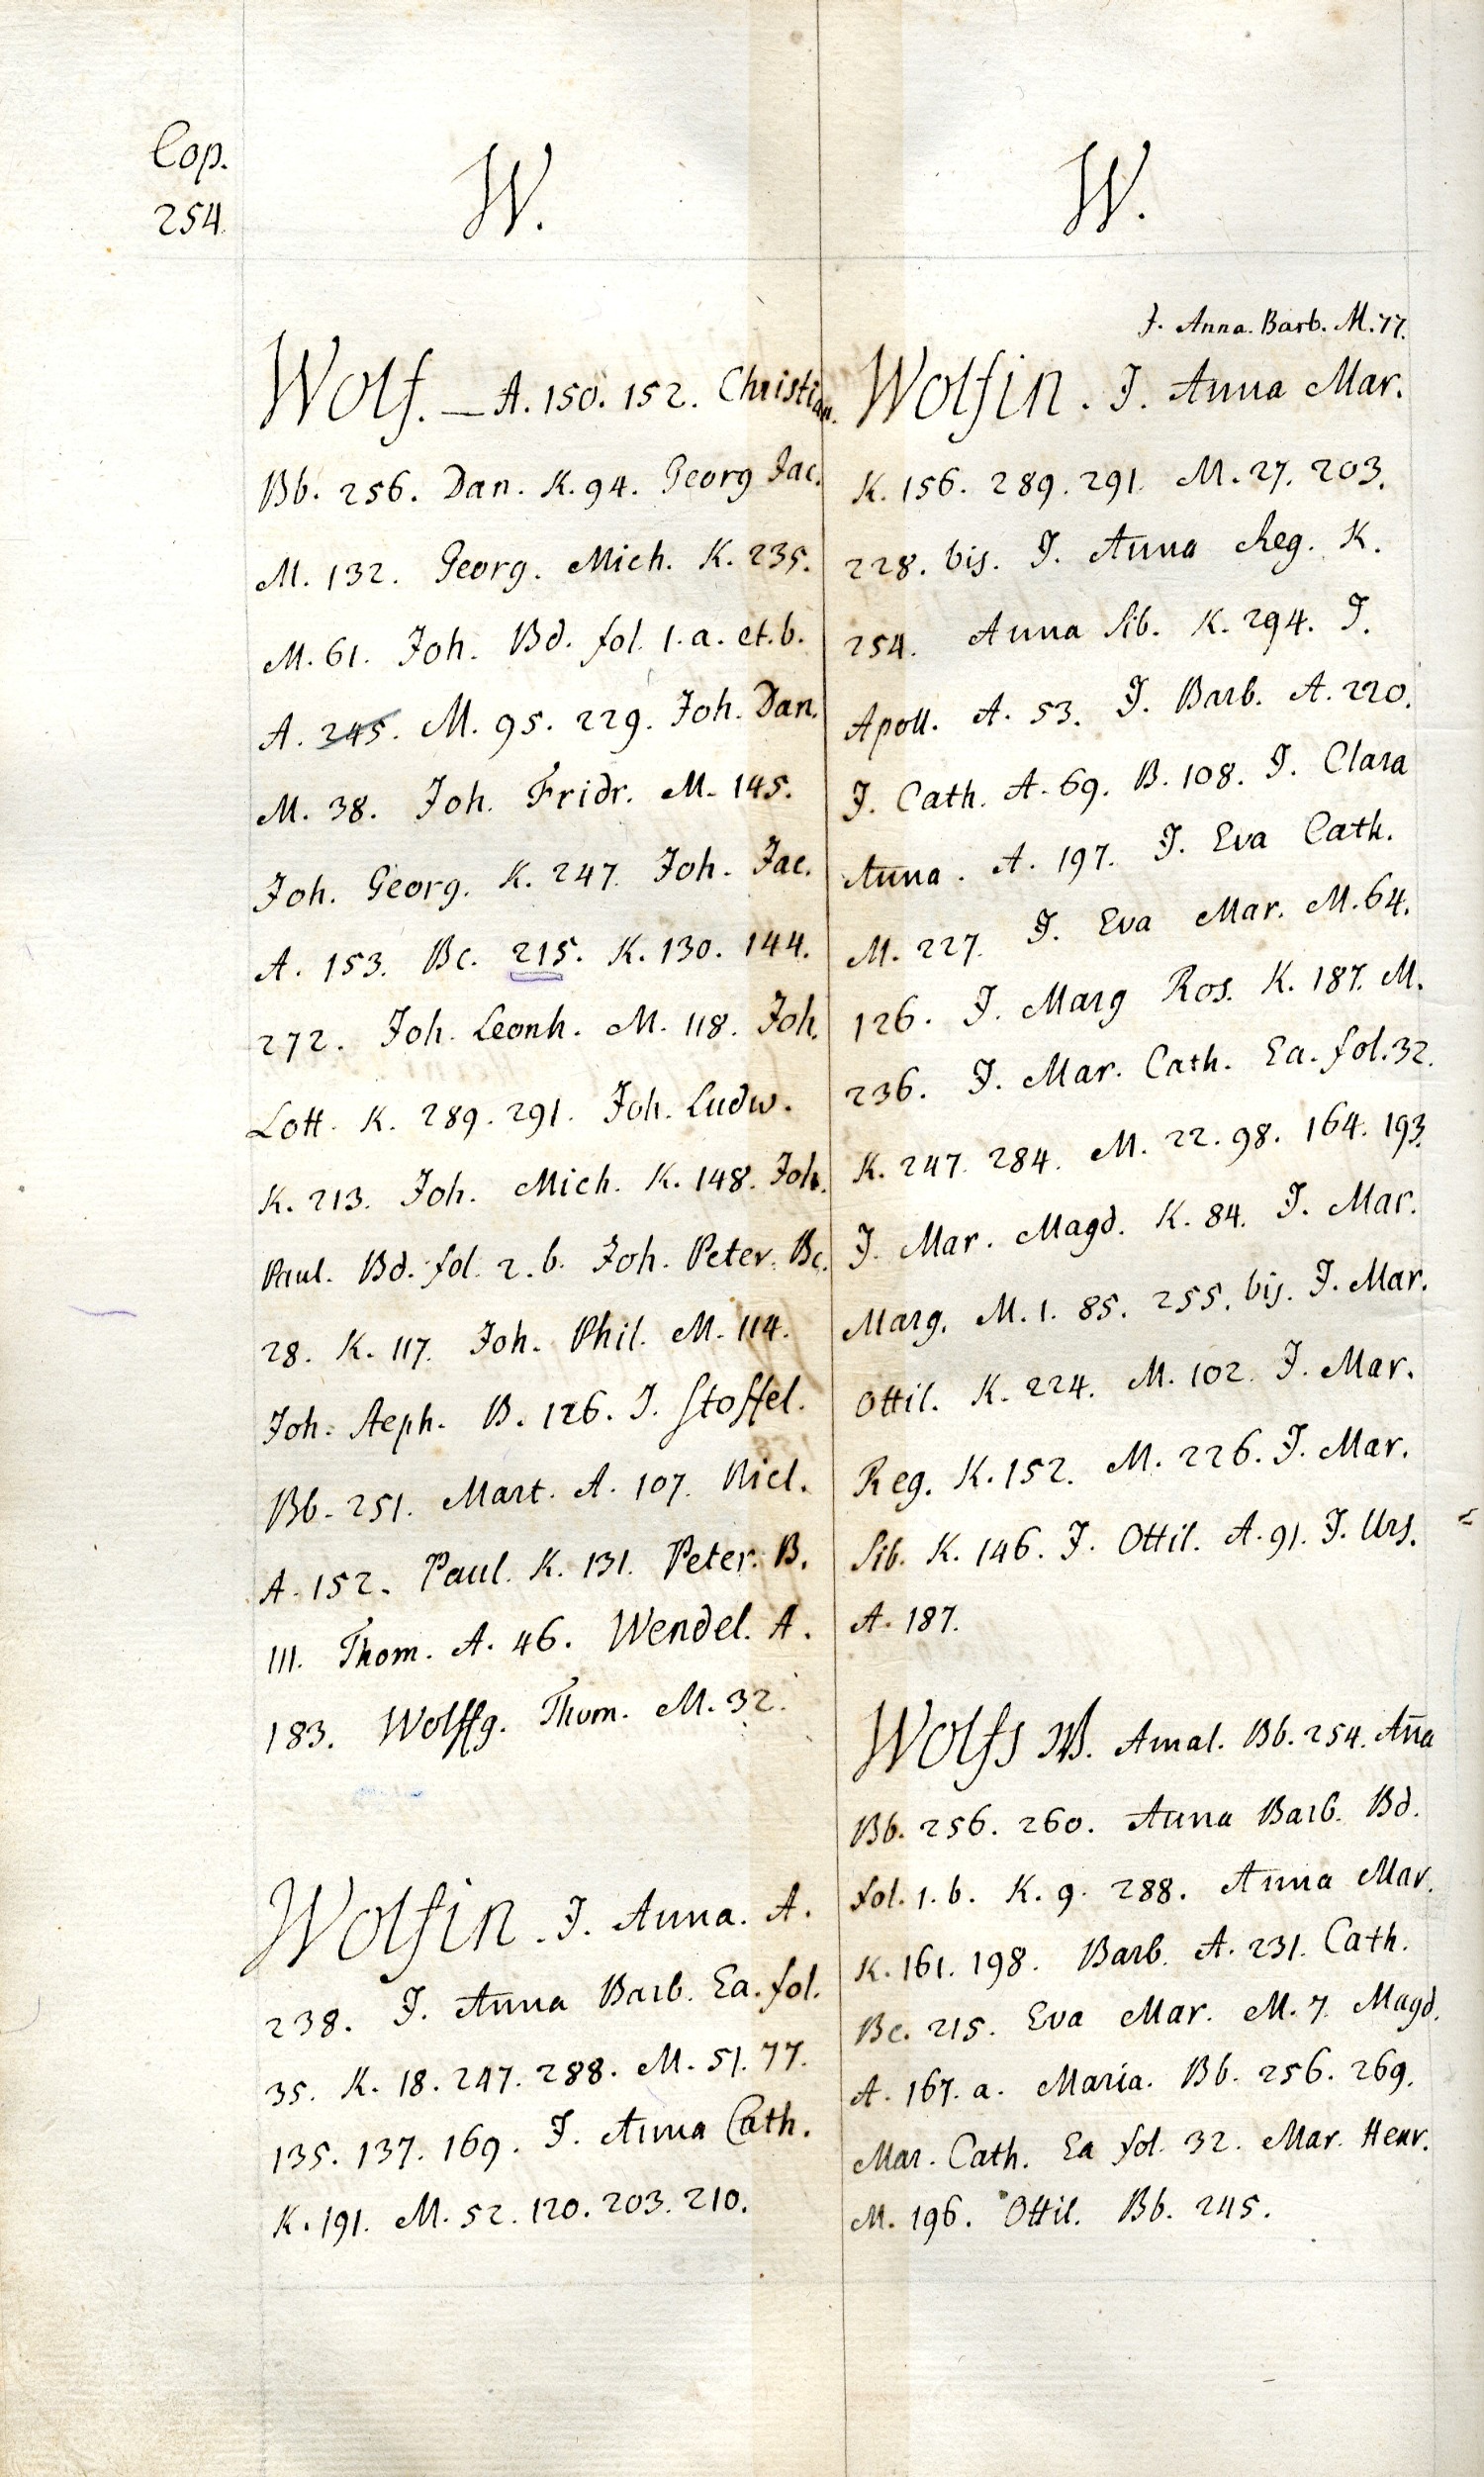 Cop.
254.
W.
Wolf. — A. 150. 152. Christian.
Bb. 256. Dan. K. 94. Georg Jac.
M. 132. Georg. Mich. K. 235.
M. 61. Joh. Bd. fol. 1. a. et. b.
A. 245. M. 95. 229. Joh. Dan.
M. 38. Joh. Fridr. M. 145.
Joh. Georg. K. 247. Joh. Jac.
A. 153. Bc. 215. K. 130. 144.
272. Joh. Leonh. M. 118. Joh.
Lott. K. 289. 291. Joh. Ludw.
K. 213. Joh. Mich. K. 148. Joh.
Paul. Bd. fol. 2. b. Joh. Peter. Bc.
28. K. 117. Joh. Phil. M. 114.
Joh. Steph. B. 126. J. Stoffel.
Bb. 251. Mart. A. 107. Nicl.
A. 152. Paul. K. 131. Peter. B.
111. Thom. A. 46. Wendel. A.
183. Wolffg. Thom. M. 32.
Wolfin. J. Anna. A.
238. J. Anna Barb. Ea. fol.
35. K. 18. 247. 288. M. 51. 77.
135. 137. 169. J. Anna Cath.
K. 191. M. 52. 120. 203. 210.
W.
J. Anna. Barb. M. 77.
Wolfin. J. Anna Mar.
K. 156. 289. 291. M. 27. 203.
228. bis. J. Anna Reg. K.
254. Anna Sib. K. 294. J.
Apoll. A. 53. J. Barb. A. 220.
J. Cath. A. 69. B. 108. J. Clara
Anna. A. 197. J. Eva Cath.
M. 227. J. Eva Mar. M. 64.
126. J. Marg Ros. K. 187. M.
236. J. Mar. Cath. Ea. fol. 32.
K. 247. 284. M. 22. 98. 164. 193.
J. Mar. Magd. K. 84. J. Mar.
Marg. M. 1. 85. 255. bis. J. Mar.
Ottil. K. 224. M. 102. J. Mar.
Reg. K. 152. M. 226. J. Mar.
Sib. K. 146. J. Ottil. A. 91. J. Urs.
A. 187.
Wolfs W. Amal. Bb. 254. Aña
Bb. 256. 260. Anna Barb. Bd.
fol. 1. b. K. 9. 288. Anna Mar.
K. 161. 198. Barb. A. 231. Cath.
Bc. 215. Eva Mar. M. 7. Magd.
A. 167. a. Maria. Bb. 256. 269.
Mar. Cath. Ea fol. 32. Mar. Henr.
M. 196. Ottil. Bb. 245.